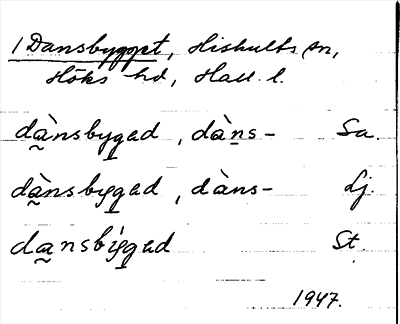 1 Dansbygget, Hishults sn,
Höks hd, Hall. l.
dànsbygəd, dàns- Sa.
dànsbygəd, dàns- Lj.
dansbýgəd St.
1947.